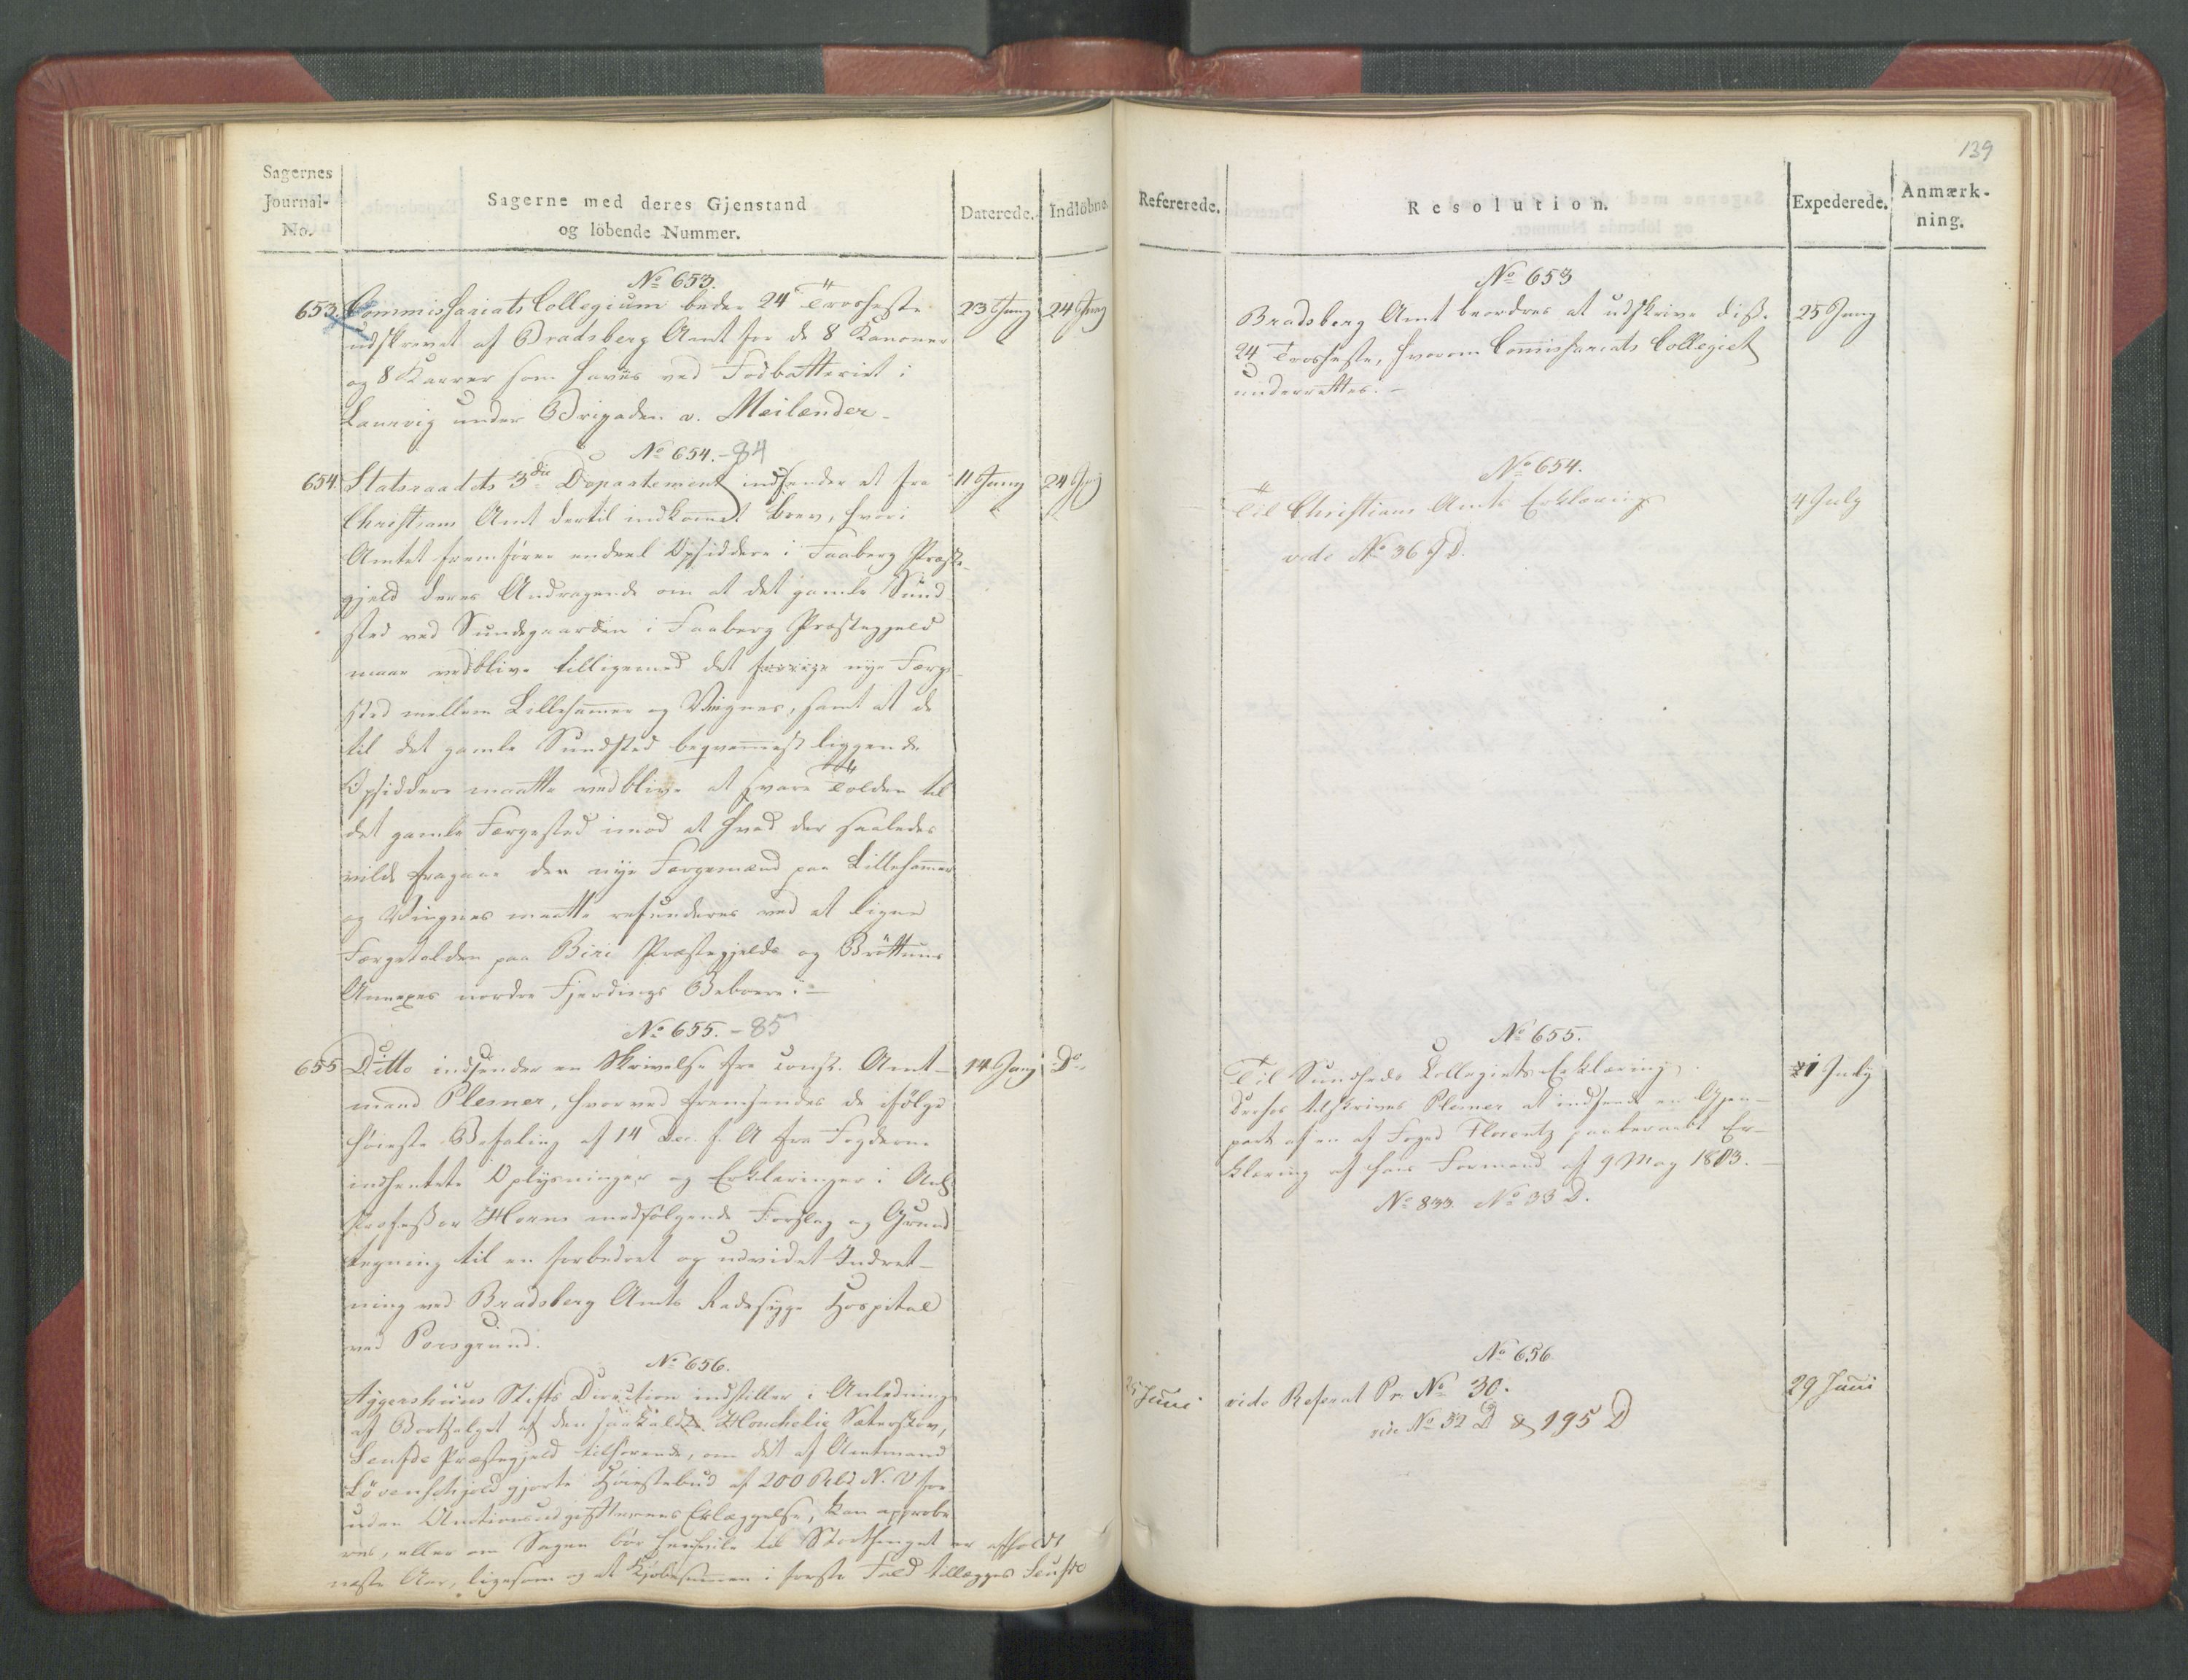 Sagernes
Journal-
No.
Sagerne med deres Gjenstand
og löbende Nummer.
Daterede.
Indlöbne.
No 653.
653. Commissariats Collegium beder 24 Trosheste
23 Juny
24 Juny
udskrevet af Bradsberg Amt for de 8 Kanoner
og 8 Karrer som haves ved Fodbatteriet i
Laurvig under Brigaden v. Meilænder.
No 654. - 84
654. Statsraadets 3die Departement indsender et fra
11 Juny
24 Juny
Christians Amt dertil indkom̄et Brev, hvori
Amtet fremfører endeel Opsiddere i Faaberg Præste-
gjeld deres Andragende om at det gamle Sund-
sted ved Sundgaarden i Faaberg Præstegjeld
maae vedblive tilligemed det nye Færge-
sted mellem Lilleham̄er og Vingnes, samt at de
til det gamle Sundsted beqvem̄est liggende
Opsiddere maatte vedblive at svare Tolden til
det gamle Færgested imod at hvad der saaledes
vilde fragaae den nye Færgemand paa Lilleham̄er
og Vingnes maatte refunderes ved at ligne
Færgetolden paa Biri Præstegjelds og Bröttums
Annexes nordre Fjerdings Beboere. -
No 655. - 85
655 Ditto indsender en Skrivelse fra const. Amt-
14 Juny
Do
mand Plesner, hvorved fremsendes de ifølge
høieste Befaling af 14 Dec. f. A fra Fogderne
indhentede Oplysninger og Erklæringer i Anl.
Professor Horns medfølgende Forslag og Grund-
tegning til en forbedret og udvidet Indret-
ning ved Bradsberg Amts Radesyge Hospital
ved Porsgrund.
No 656.
Aggershuus Stifts Direction indstiller i Anledning
af Bortsalget af den saakaldte Houchelie Sæterskov,
Seufde Præstegjeld tilhørende, om det af Amtmand
Lövenskjold gjorte Høiestebud af 200 Rbd N. V for-
uden Auctionsudgifternes Erlæggelse, kan approbe-
res, eller om Sagen bör henhvile til Storthinget er afholdt
næste Aar, ligesom og at Kjøbesummen i første Fald tillægges Seufde
139
Refererede.
Resolution.
Expederede.
Anmærk-
ning.
No 653
Bradsberg Amt beordres at udskrive disse
25 Juny
24 Trosheste, hvorom Com̄issariats Collegiet
underrettes. -
No 654.
Til Christians Amts Erklæring
4 July
vide No 36 D.
No 655.
Til Sundheds Collegiets Erklæring.
1 July
Derhos tilskrives Plesner at indsende en Gjen-
part af en af Foged Florentz paaberaabt Er-
klæring af hans Formand af 9 May 1803. -
No 833. No 33 D.
No 656
25 Juni
vide Referat Pr. No 30.
29 Juni
vide No 32 D & 195 D